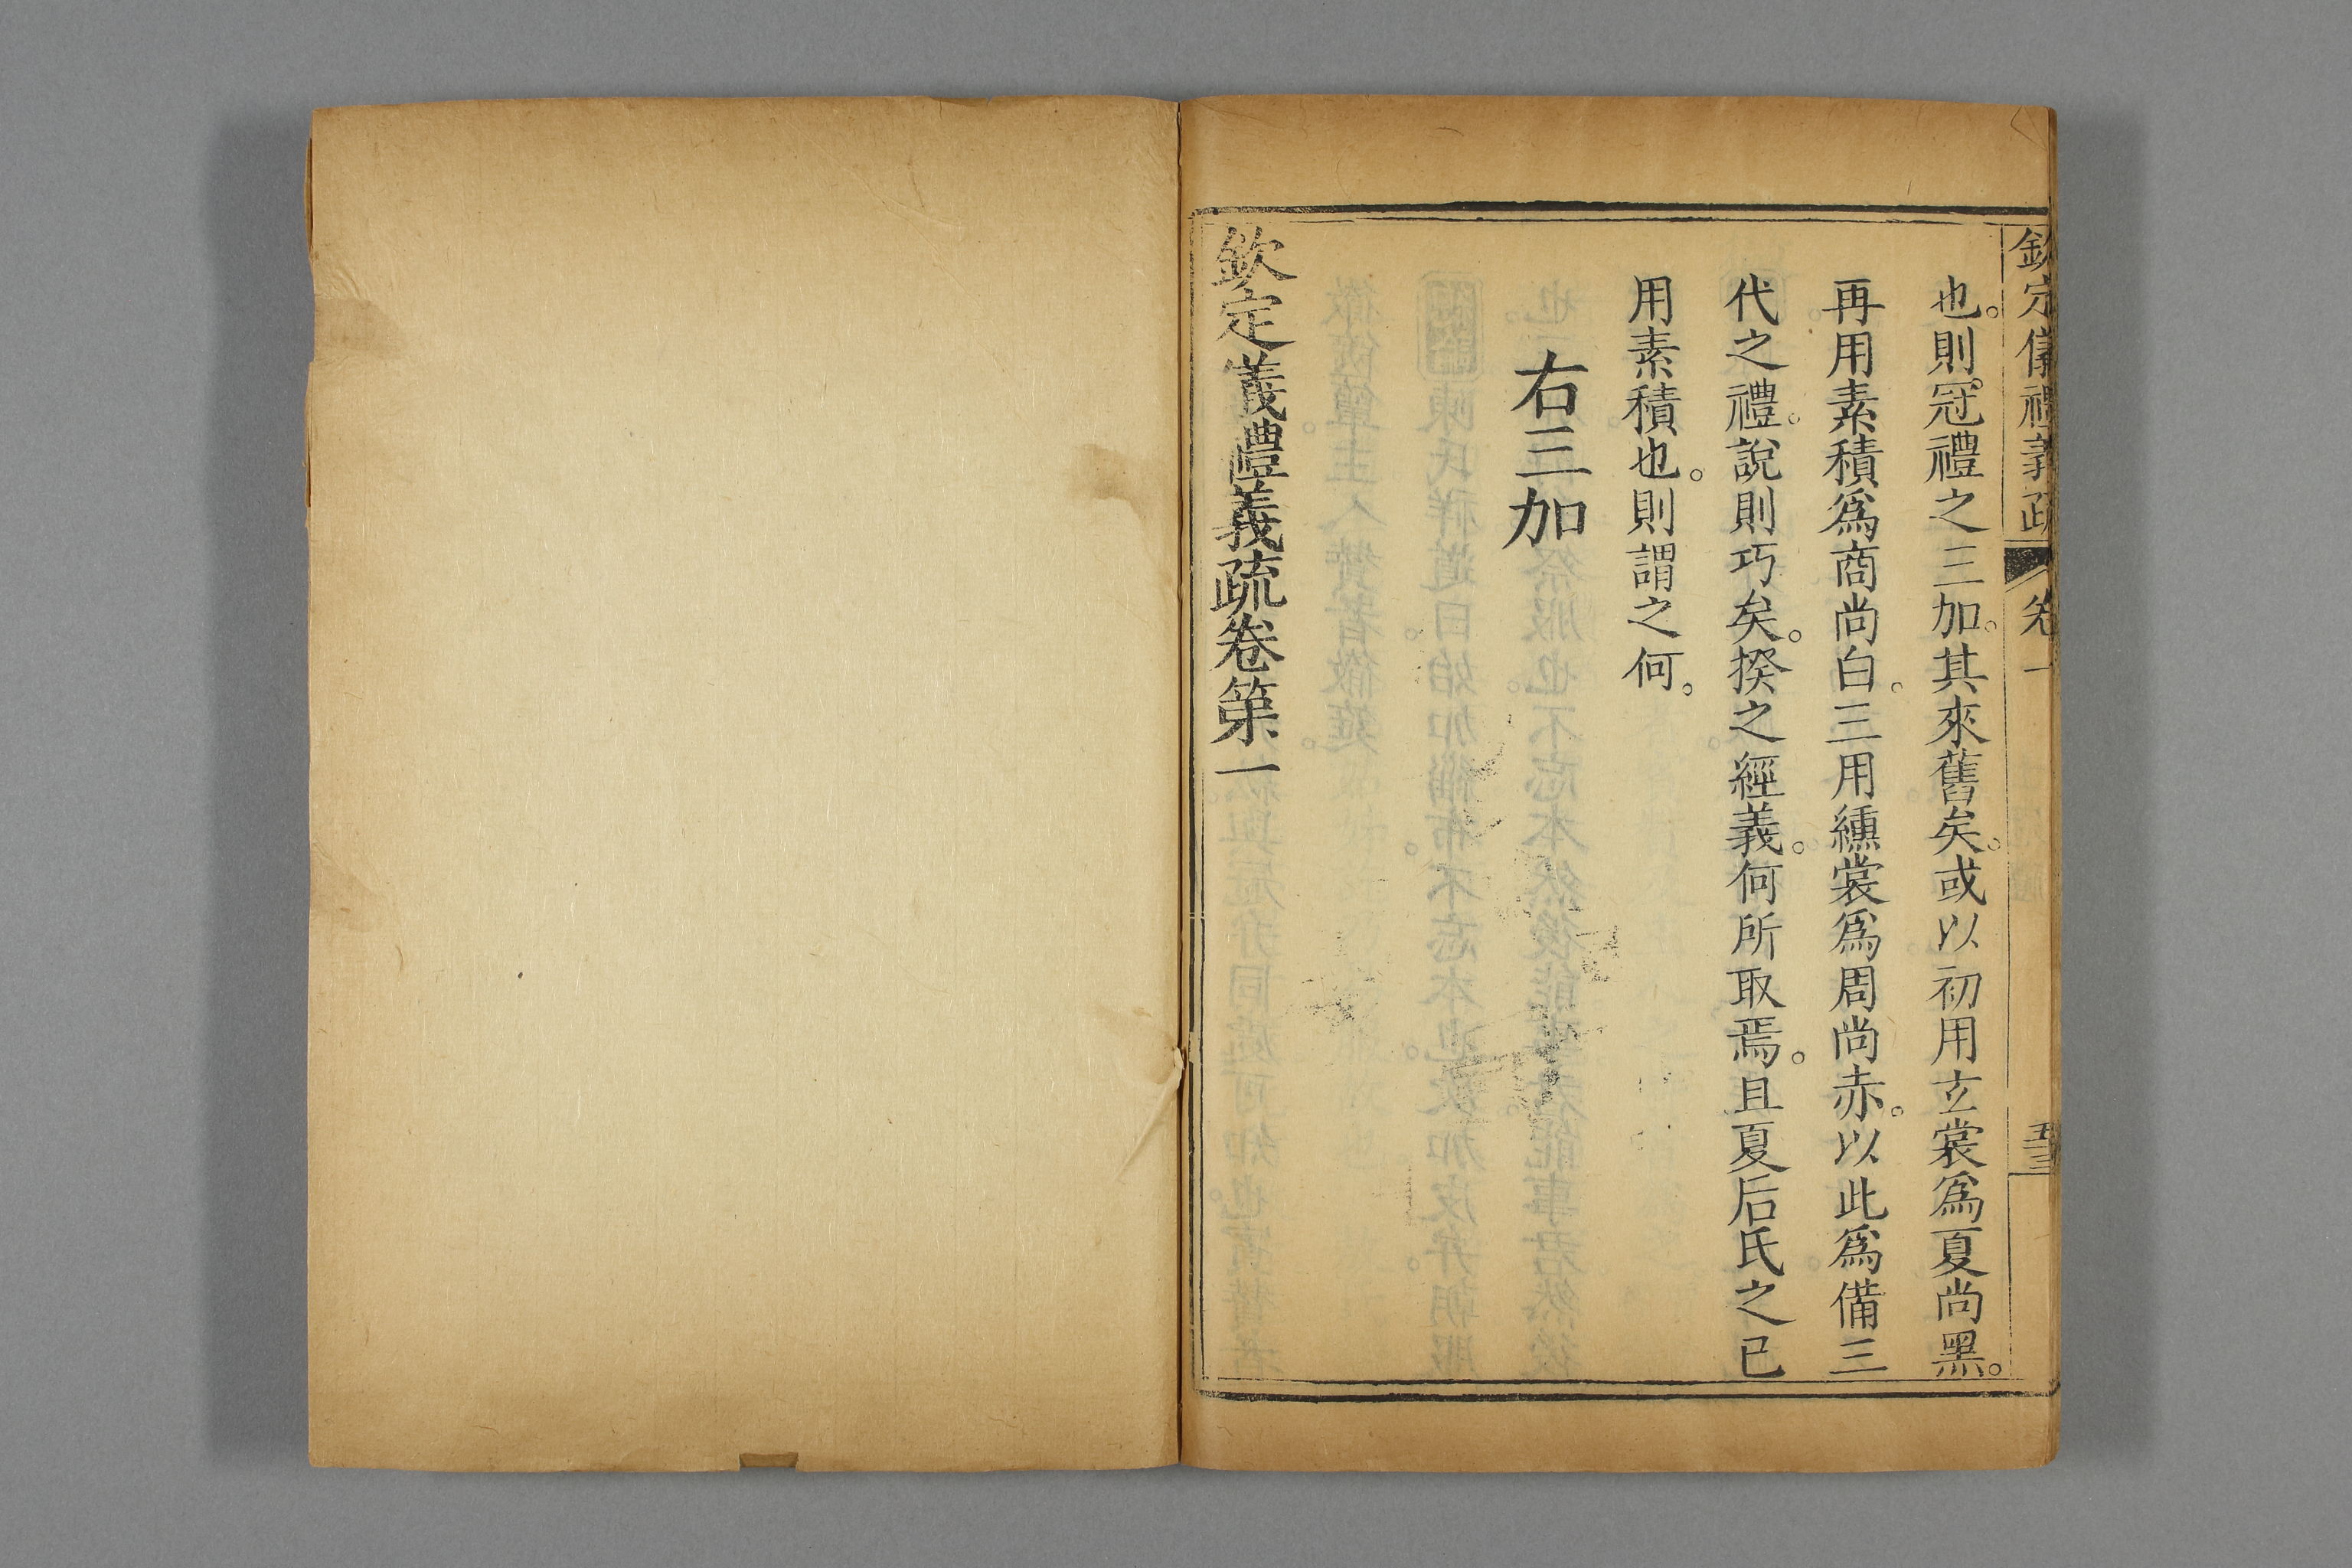 欽定儀禮義疏 卷一 五三
也。則冠禮之三加。其來舊矣。或以初用玄裳爲夏尚黑。
再用素積爲商尚白。三用纁裳爲周尚赤。以此爲備三
代之禮。說則巧矣。揆之經義。何所取焉。且夏后氏之已
用素積也。則謂之何。
右三加
欽定儀禮義疏卷第一